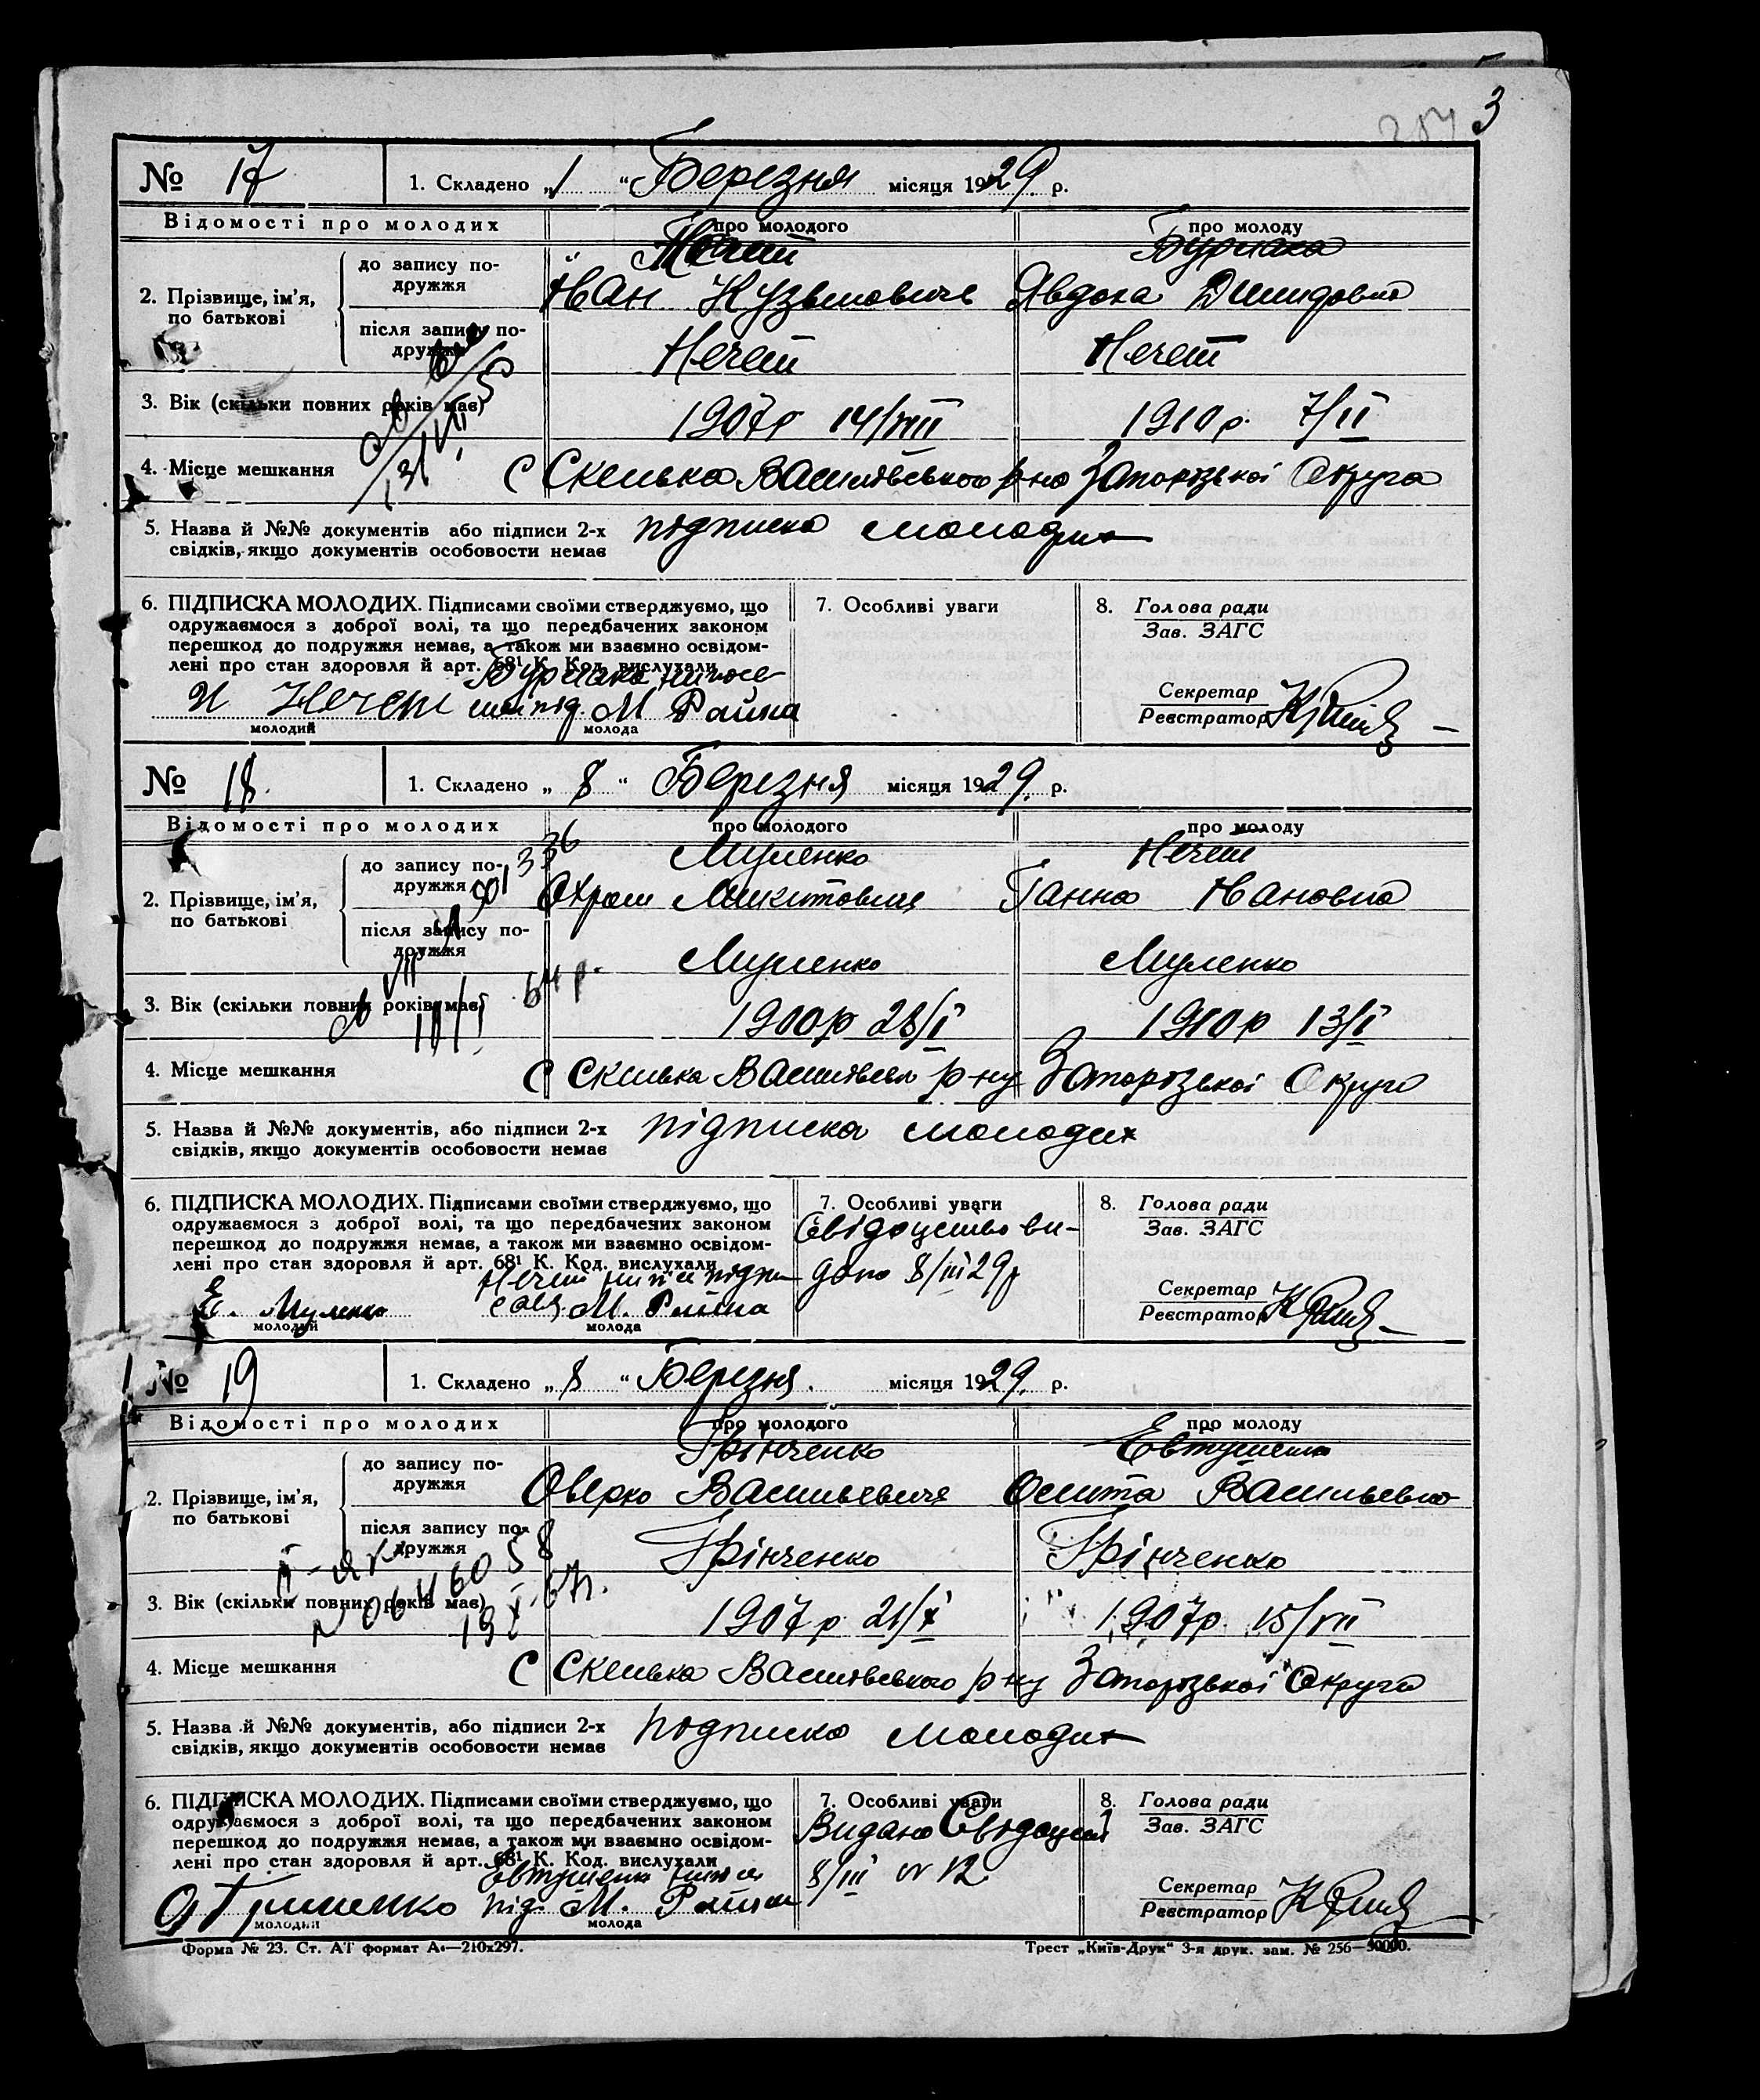 3
№ 17 1. Складено „1“ Березня місяця 1929. р.
Відомості про молодих про молодого про молоду
2. Прізвище, ім'я, по батькові
до запису по-
дружжя
Іван Кузьмович Явдоха Демидовна
після запису по-
дружжя
Нечет Нечет
3. Вік (скільки повних років має)
1907р 14/VIII 1910р. 7/II
4. Місце мешкання С Скелька Василівського р-на Запорізької Округа
5. Назва й №№ документів або підписи 2-х
свідків, якщо документів особовости немає
підписка молодих
6. ПІДПИСКА МОЛОДИХ. Підписами своїми стверджуємо, що
одружаємося з доброї волі, та що передбачених законом
перешкод до подружжя немає, а також ми взаємно освідом-
лені про стан здоровля й арт. 68¹ К. Код. вислухали
И Нечет М Райна
молодий молода
7. Особливі уваги
8. Голова ради
Зав. ЗАГС
Секретар
Реєстратор
№ 18. 1. Складено „8“ Березня місяця 1929. р.
Відомості про молодих про молодого про молоду
Муленко Нечет
2. Прізвище, ім'я, по батькові
до запису по-
дружжя
Охрам Микитович Ганна Івановна
після запису по-
дружжя
Муленко Муленко
3. Вік (скільки повних років має)
64 р.
1900р 28/I 1910р 13/I
4. Місце мешкання С Скелька Василівськ р-ну Запорізької Округа
5. Назва й №№ документів, або підписи 2-х
свідків, якщо документів особовости немає
підписка молодих
6. ПІДПИСКА МОЛОДИХ. Підписами своїми стверджуємо, що
одружаємося з доброї волі, та що передбачених законом
перешкод до подружжя немає, а також ми взаємно освідом-
лені про стан здоровля й арт. 68¹ К. Код. вислухали
Нечет
Е. Муленко М. Райна
молодий молода
7. Особливі уваги
Свідоцтво ви-
дано 8/III 29р
8. Голова ради
Зав. ЗАГС
Секретар
Реєстратор
№ 19 1. Складено „8“ Березня. місяця 1929. р.
Відомості про молодих про молодого про молоду
Грінченко Евтушенко
2. Прізвище, ім'я, по батькові
до запису по-
дружжя
Оверко Васильевич Васильевна
після запису по-
дружжя
Грінченко Грінченко
3. Вік (скільки повних років має)
1907р 21/X 1907р. 15/VII
4. Місце мешкання С Скелька Василівського р-ну Запорізької Округа
5. Назва й №№ документів, або підписи 2-х
свідків, якщо документів особовости немає
підписка молодих
6. ПІДПИСКА МОЛОДИХ. Підписами своїми стверджуємо, що
одружаємося з доброї волі, та що передбачених законом
перешкод до подружжя немає, а також ми взаємно освідом-
лені про стан здоровля й арт. 68¹ К. Код. вислухали
Евтушенк
підп. М. Райна
молодий молода
7. Особливі уваги
Видано Свідоцтво
8/III № 12
8. Голова ради
Зав. ЗАГС
Секретар
Реєстратор
Форма № 23. Ст. АТ формат А₄—210x297. Трест „Київ-Друк“ 3-я друк. зам. № 256—50000.